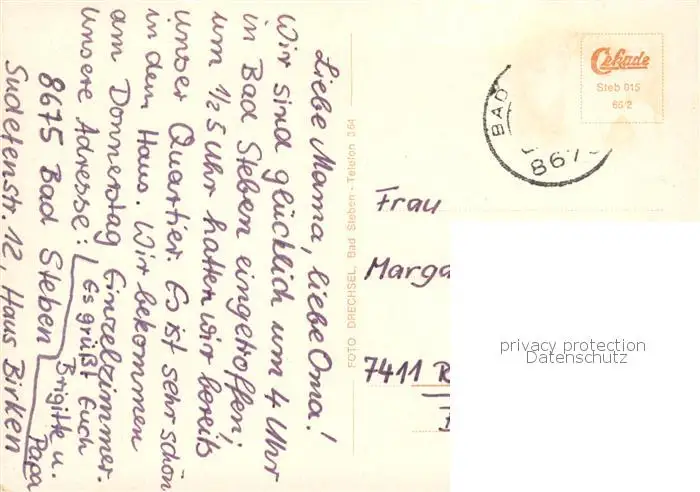 Liebe Mama, liebe Oma!
Wir sind glücklich um 4 Uhr
in Bad Steben eingetroffen;
um 1/2 5 Uhr hatten wir bereits
unser Quartier. Es ist sehr schön
in dem Haus. Wir bekommen
am Donnerstag Einzelzimmer.
Unsere Adresse:
8675 Bad Steben
Sudetenstr. 12, Haus Birken
Es grüßt Euch
Brigitte u.
Papa
FOTO DRECHSEL, Bad Steben - Telefon 364
Cekade
Steb 015
66/2
BAD
867
Frau
Marga
7411 R
privacy protection
Datenschutz